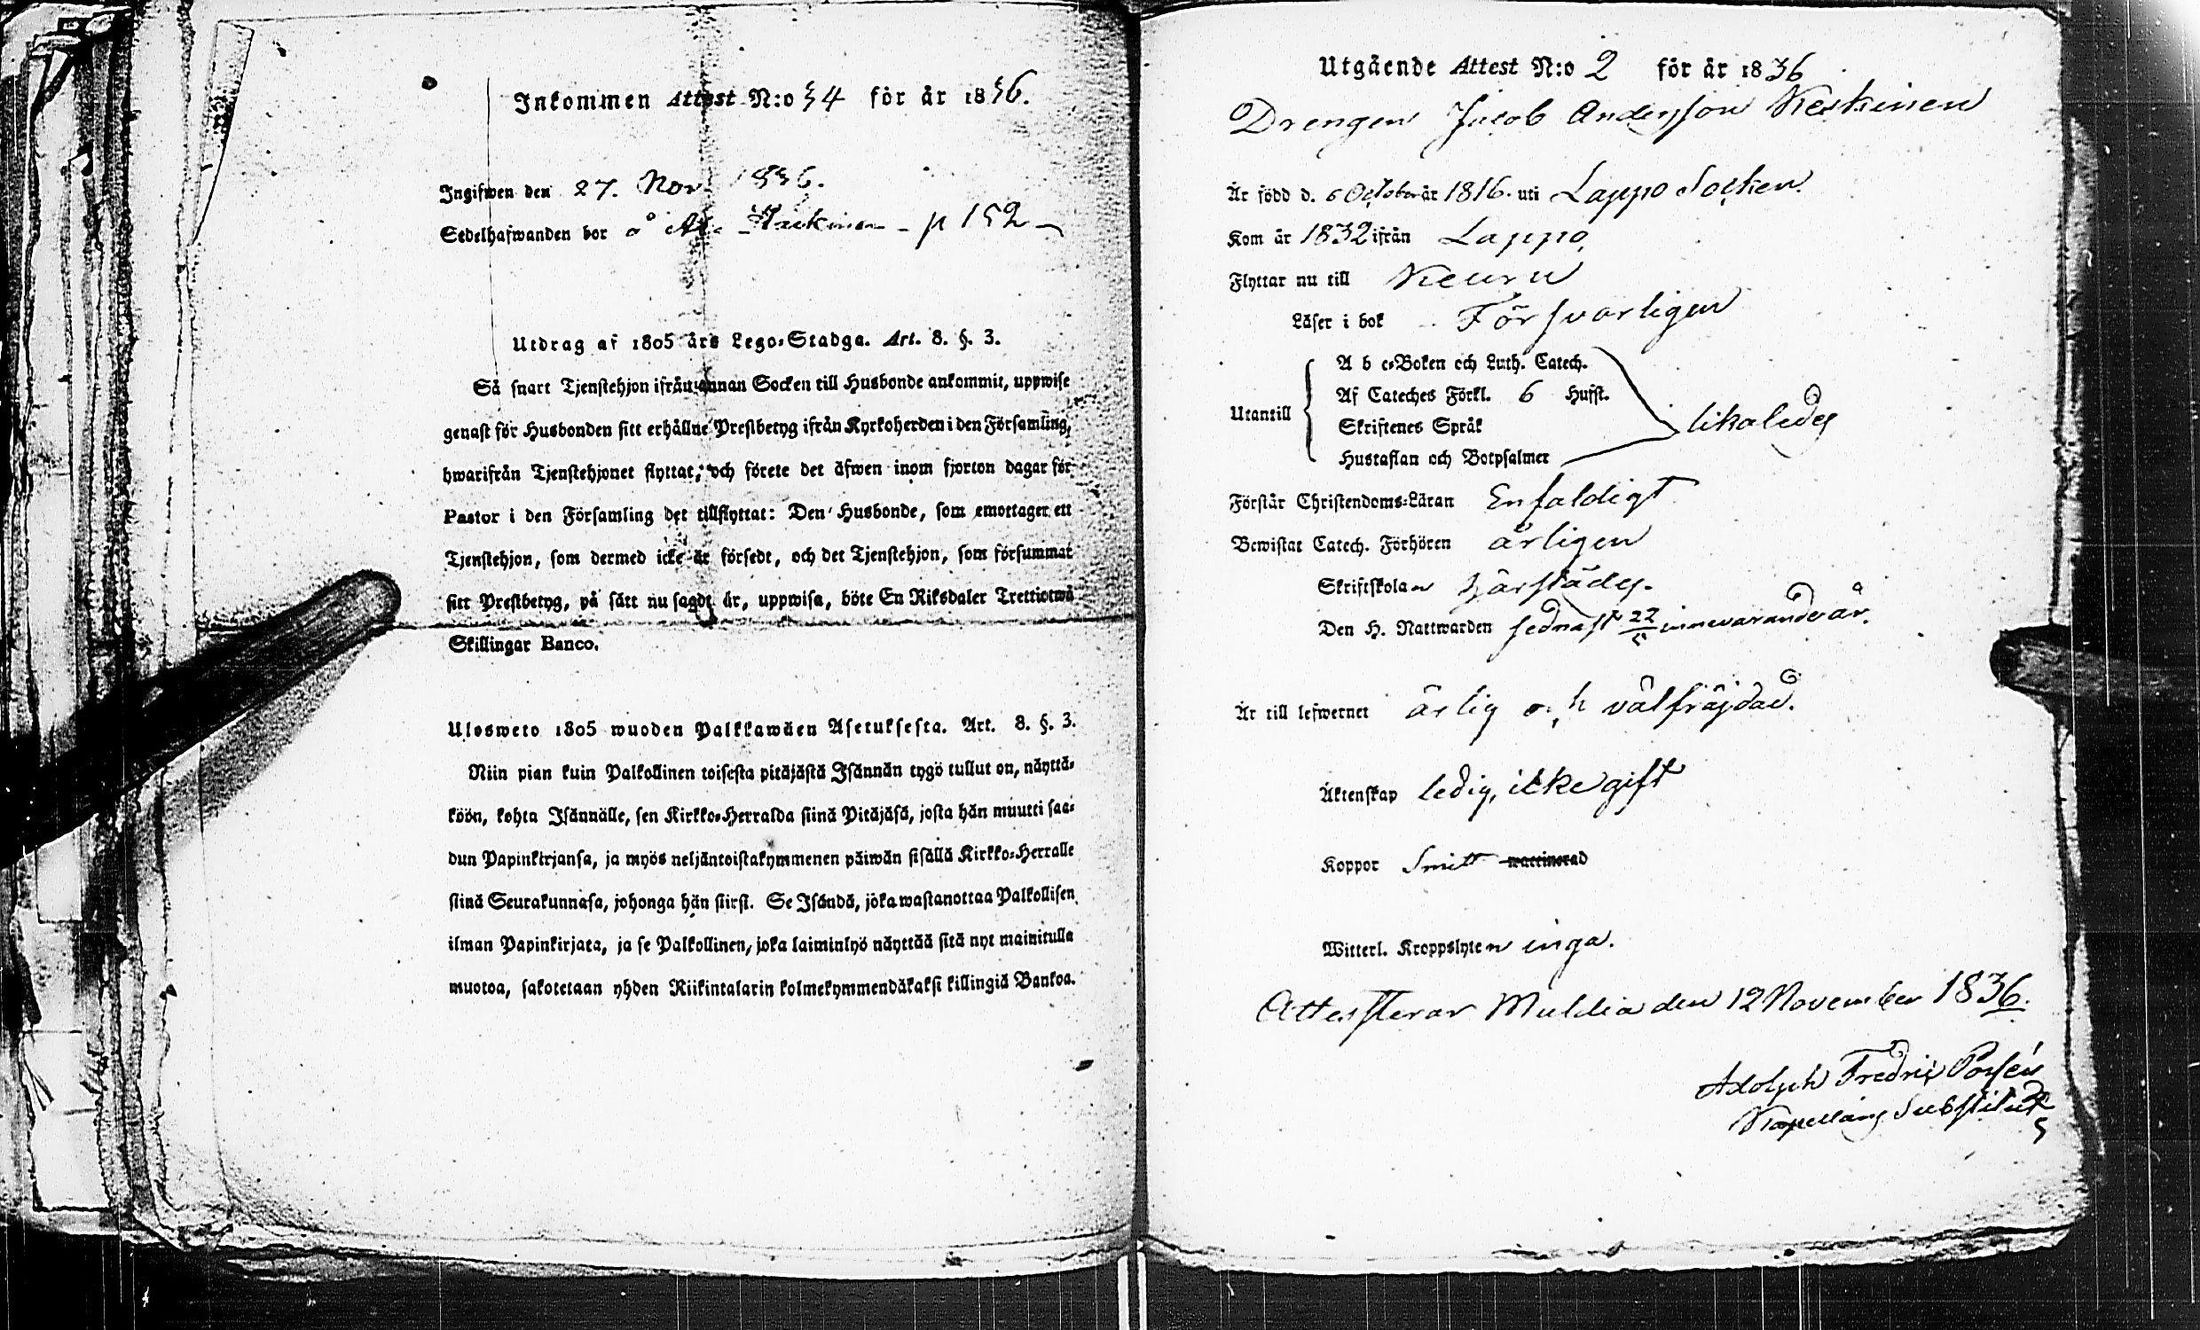 Inkommen Attest N:o 54 för år 1836.
Ingifwen den 27. Nov. 1836.
Sedelhafwanden bor å p 152
Utdrag af 1805 års Lego-Stadga. Art. 8. §. 3.
Så snart Tjenstehjon ifrån annan Socken till Husbonde ankommit, uppwise
genast för Husbonden sitt erhållne Prestbetyg ifrån Kyrkoherden i den Församling,
hwarifrån Tjenstehjonet flyttat, och förete det äfwen inom fjorton dagar för
Pastor i den Församling det tillflyttat: Den Husbonde, som emottager ett
Tjenstehjon, som dermed icke är försedt, och det Tjenstehjon, som försummat
sitt Prestbetyg, på sätt nu sagdt är, uppwisa, böte En Riksdaler Trettiotwå
Skillingar Banco.
Ulosweto 1805 wuoden Palkkawäen Asetuksesta. Art. 8. §. 3.
Niin pian kuin Palkollinen toisesta pitäjästä Isännän tygö tullut on, näyttä-
köön, kohta Isännälle, sen Kirkko-Herralda siinä Pitäjäsä, josta hän muutti saa-
dun Papinkirjansa, ja myös neljäntoistakymmenen päiwän sisällä Kirkko-Herralle
siinä Seurakunnasa, johonga hän siirsi. Se Isändä, joka wastanottaa Palkollisen
ilman Papinkirjata, ja se Palkollinen, joka laiminlyö näyttää sitä nyt mainitulla
muotoa, sakotetaan yhden Riikintalarin kolmekymmendäkaksi killingiä Bankoa.
Utgående Attest N:o 2 för år 1836
Drengen Jacob Andersson Keskinen
Är född d. 6 October år 1816. uti Lappo Socken.
Kom år 1832 ifrån Lappo,
Flyttar nu till Keuru
Läser i bok Försvarligen
Utantill
A b c-Boken och Luth. Catech.
Af Cateches Förkl. 6 Hufst.
Skriftenes Språk
Hustaflan och Botpsalmer
likaledes
Förstår Christendoms-Läran Enfaldigt
Bewistat Catech. Förhören årligen
Skriftskolan härstädes.
Den H. Nattwarden sednast 22/5 innevarande år.
Är till lefwernet ärlig och välfräjdad.
Äktenskap ledig, icke gift
Koppor Smitt waccinerad
Witterl. Kroppslyten inga.
Attesterar Muldia den 12 November 1836.
Adolph Fredric Porsén
Kapellans Substitut